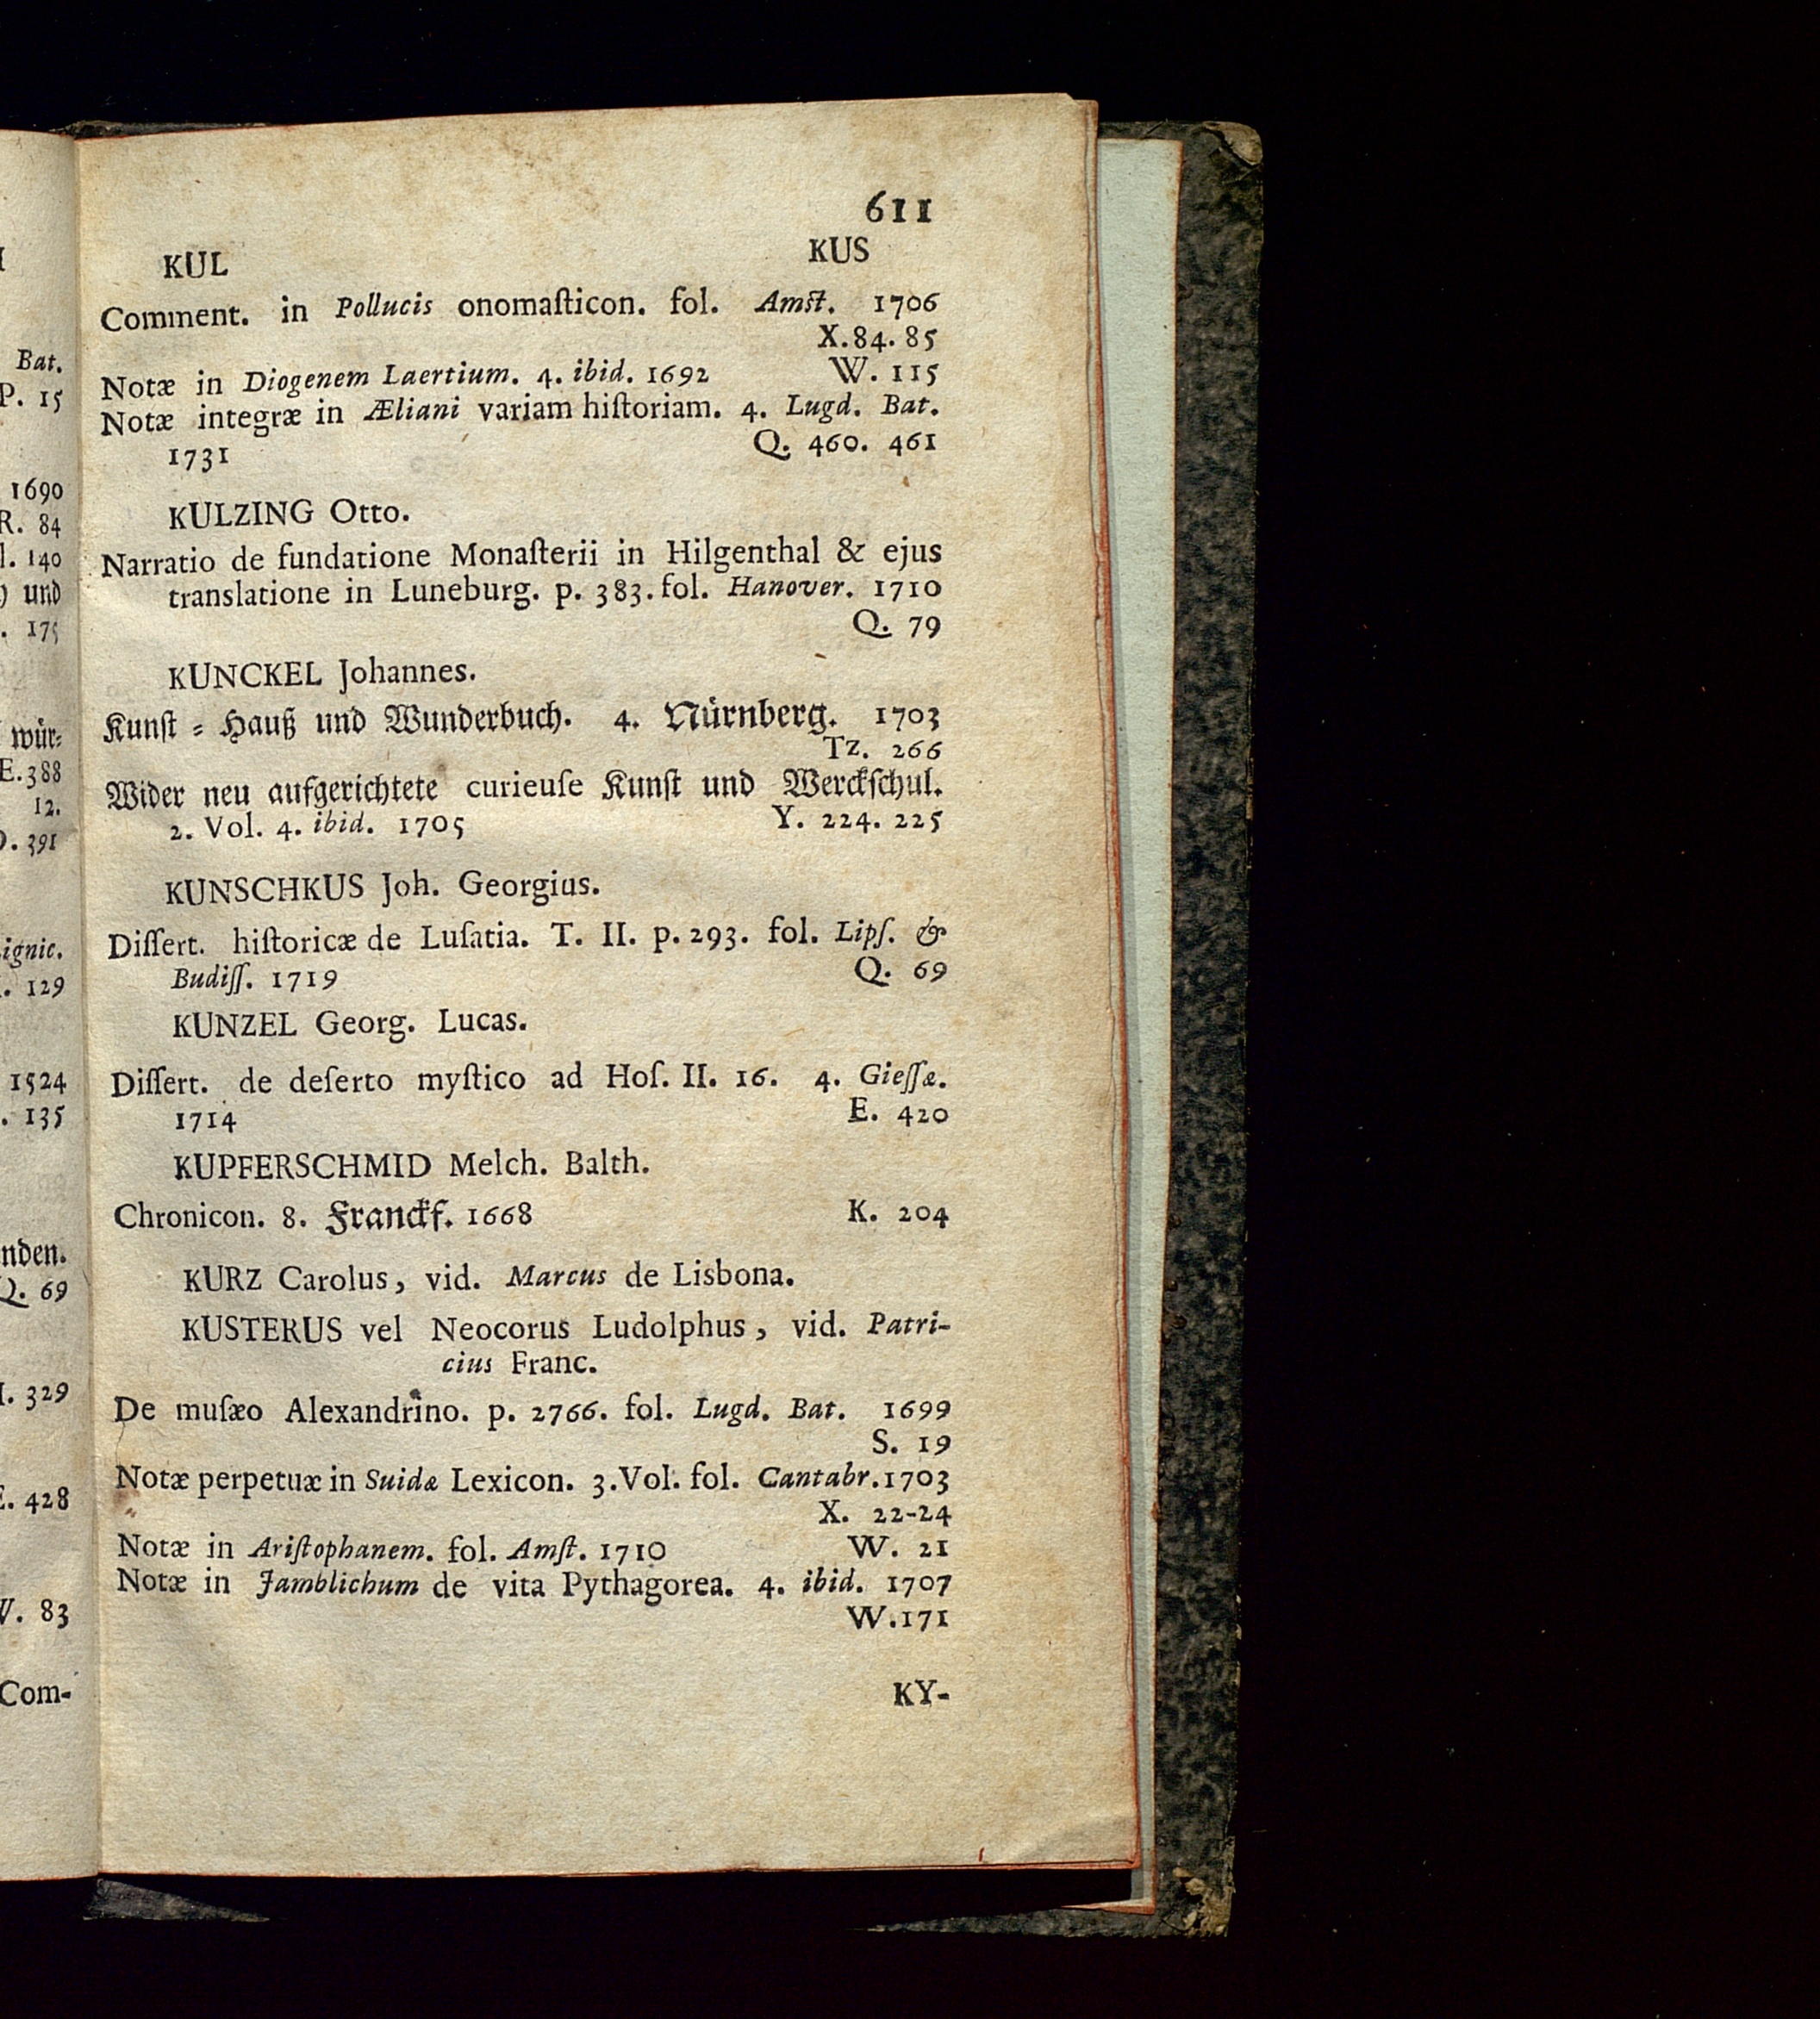 611
KUL KUS
Comment. in Pollucis onomaſticon. fol. Amſt. 1706
X. 84. 85
Notæ in Diogenem Laertium. 4. ibid. 1692 W. 115
Notæ integræ in Æliani variam hiſtoriam. 4. Lugd. Bat.
1731 Q. 460. 461
KULZING Otto.
Narratio de fundatione Monaſterii in Hilgenthal & ejus
translatione in Luneburg. p. 383. fol. Hanover. 1710
Q. 79
KUNCKEL Johannes.
Kunſt = Hauß und Wunderbuch. 4. Nürnberg. 1703
Tz. 266
Wider neu aufgerichtete curieuſe Kunſt und Werckſchul.
2. Vol. 4. ibid. 1705 Y. 224. 225
KUNSCHKUS Joh. Georgius.
Diſſert. hiſtoricæ de Luſatia. T. II. p. 293. fol. Lipſ. &
Budiſſ. 1719 Q. 69
KUNZEL Georg. Lucas.
Diſſert. de deſerto myſtico ad Hoſ. II. 16. 4. Gieſſæ.
1714 E. 420
KUPFERSCHMID Melch. Balth.
Chronicon. 8. Franckf. 1668 K. 204
KURZ Carolus, vid. Marcus de Lisbona.
KUSTERUS vel Neocorus Ludolphus, vid. Patri-
cius Franc.
De muſæo Alexandrino. p. 2766. fol. Lugd. Bat. 1699
S. 19
Notæ perpetuæ in Suidæ Lexicon. 3. Vol. fol. Cantabr. 1703
X. 22-24
Notæ in Ariſtophanem. fol. Amſt. 1710 W. 21
Notæ in Jamblichum de vita Pythagorea. 4. ibid. 1707
W. 171
KY-
Bat.
P. 15
1690
R. 84
140
und
175
wür=
E. 388
12.
391
129
1524
135
Q. 69
329
428
83
Com-